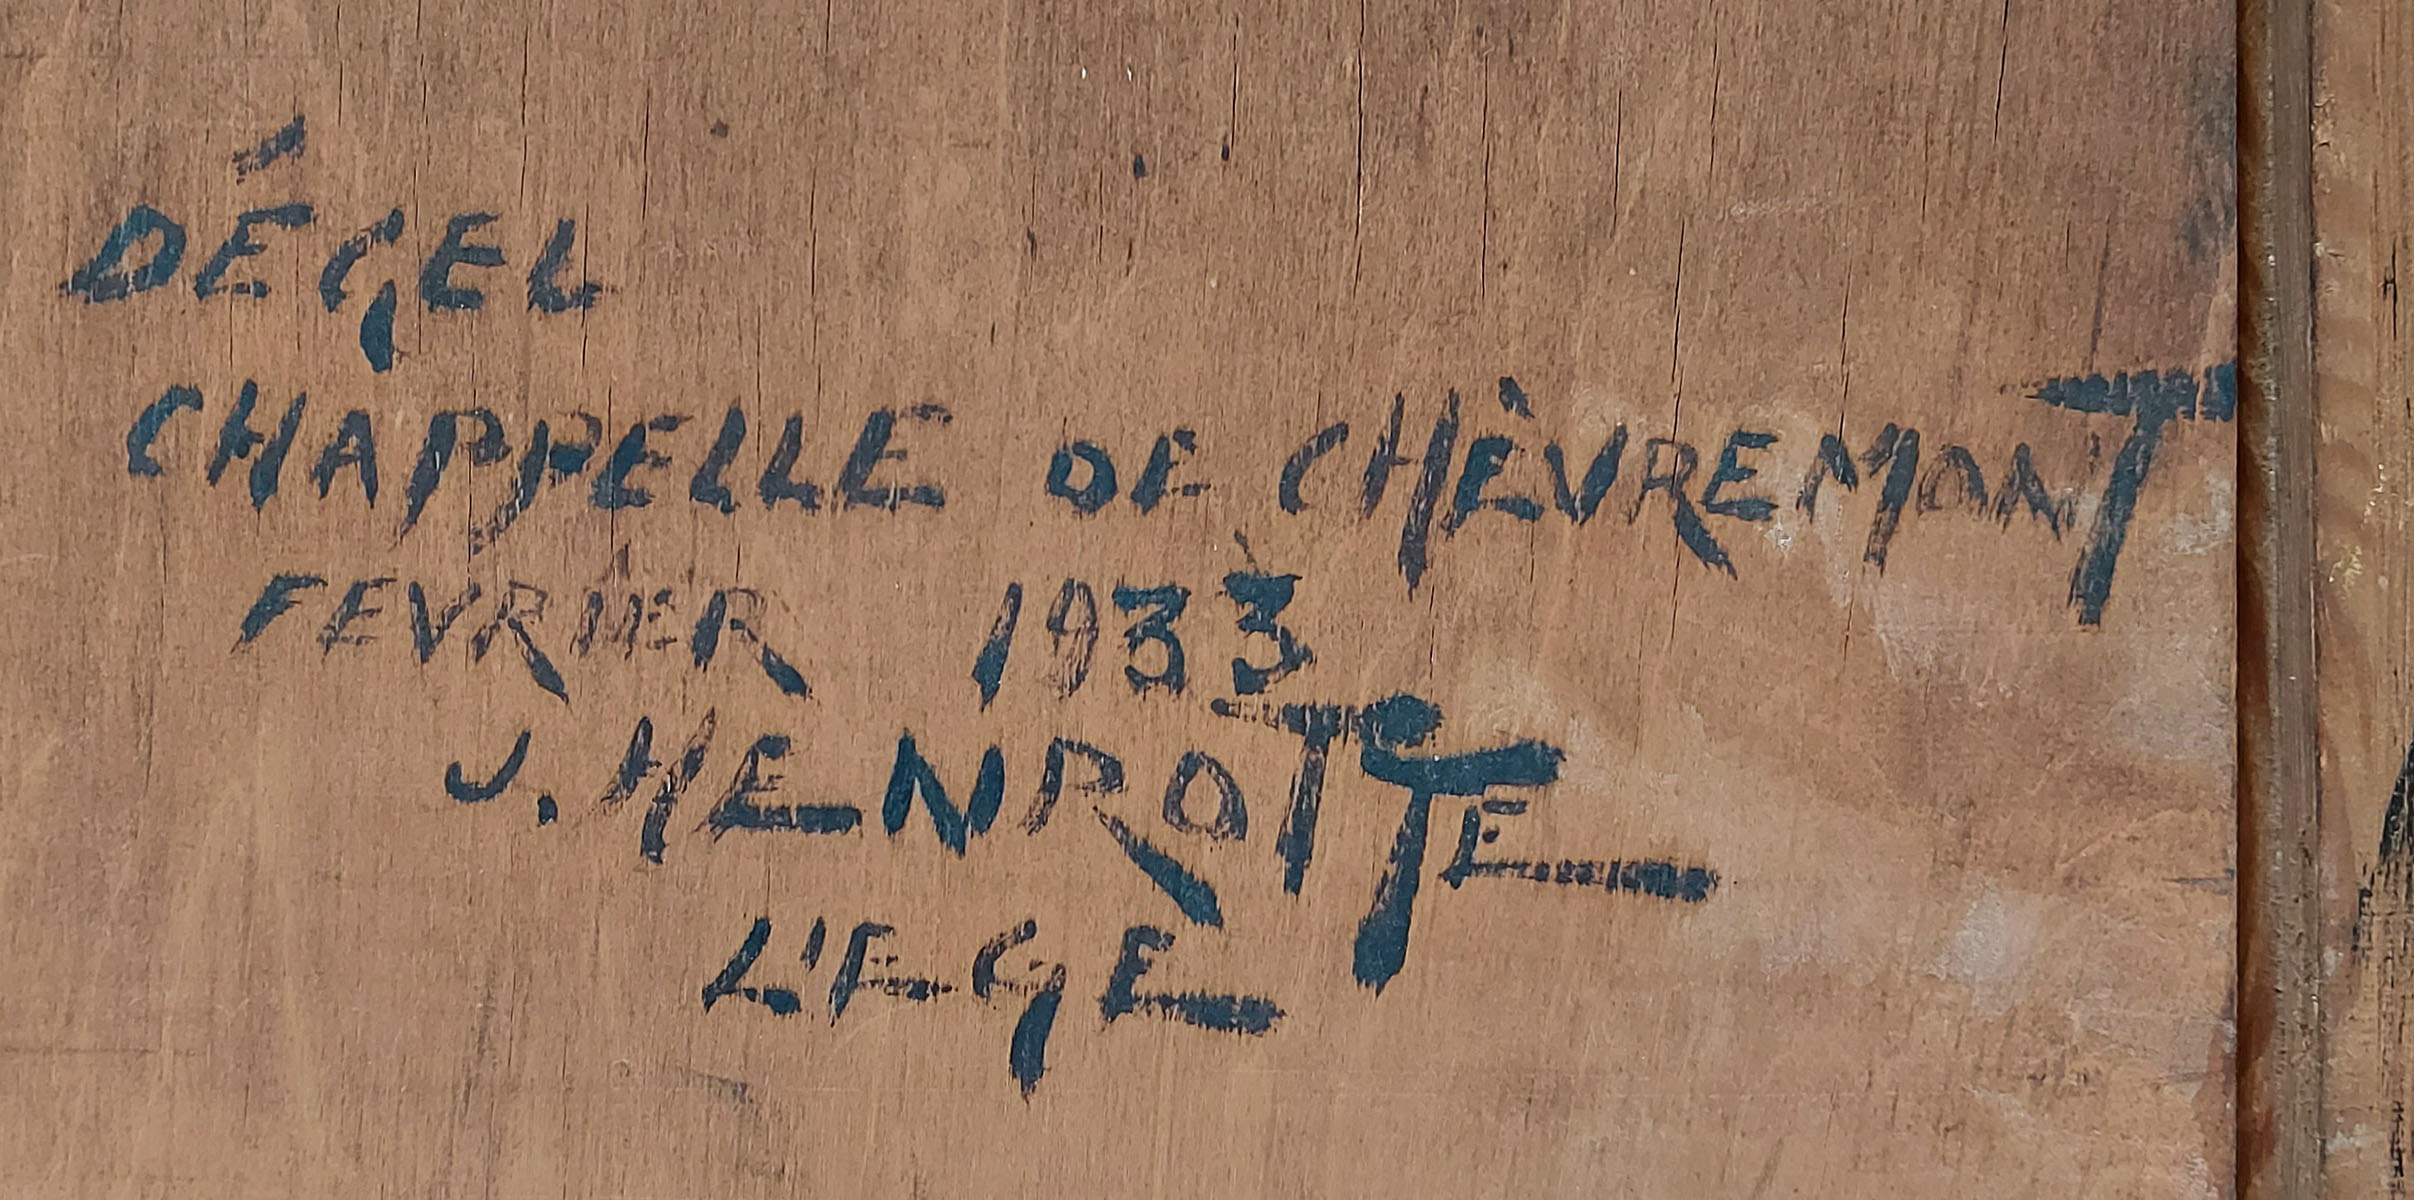 DÉGEL
CHAPPELLE DE CHÈVREMONT
FEVRIER 1933
J. HENROTTE
L'EGE